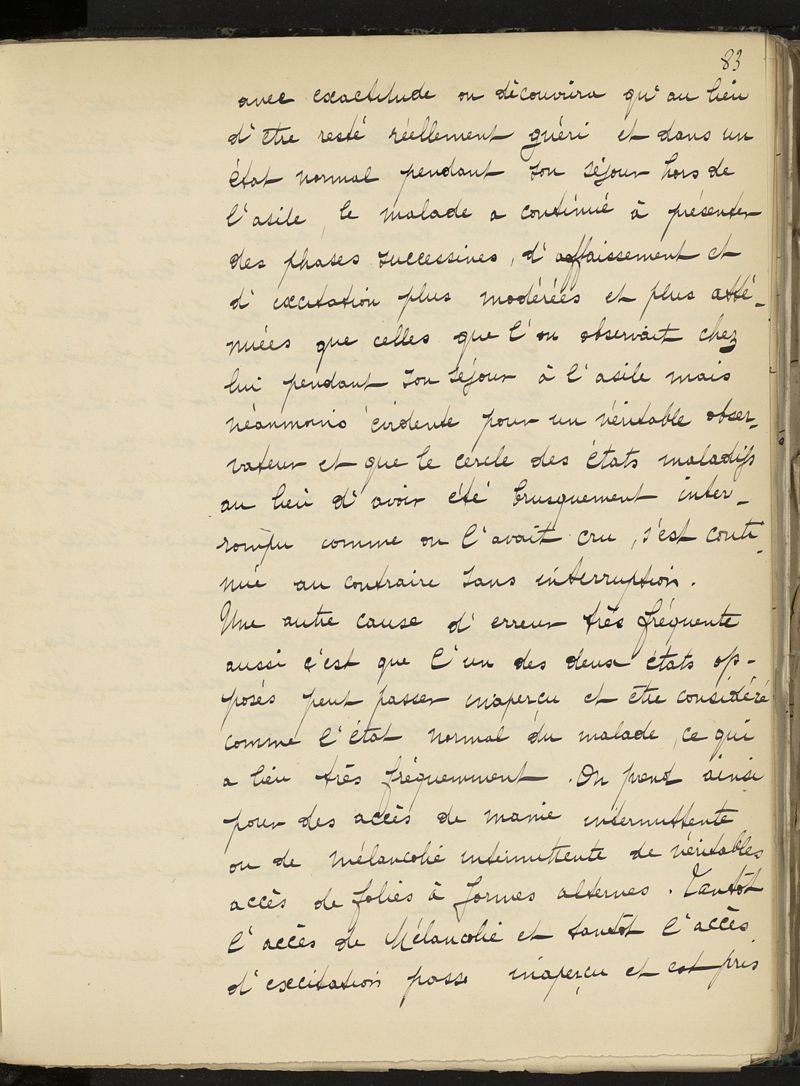 83
avec exactitude on découvrira qu'au lieu
d'être resté réellement guéri et dans un
état normal pendant son séjour hors de
l'asile, le malade a continué à présenter
des phases successives, d'affaissement et
d'excitation plus modérées et plus atté-
nuées que celles que l'on observait chez
lui pendant son séjour à l'asile mais
néanmoins évidente pour un véritable obser-
vateur et que le cercle des états maladifs
au lieu d'avoir été brusquement inter-
rompu comme on l'avait cru, s'est conti-
nué au contraire sans interruption.
Une autre cause d'erreur très fréquente
aussi c'est que l'un des deux états op-
posés peut passer inaperçu et être considéré
comme l'état normal du malade, ce qui
a lieu très fréquemment. On prend ainsi
pour des accès de manie intermittente
ou de mélancolie intermittente de véritables
accès de folies à formes alternes. Tantôt
l'accès de Mélancolie et tantôt l'accès
d'excitation passe inaperçu et est pris